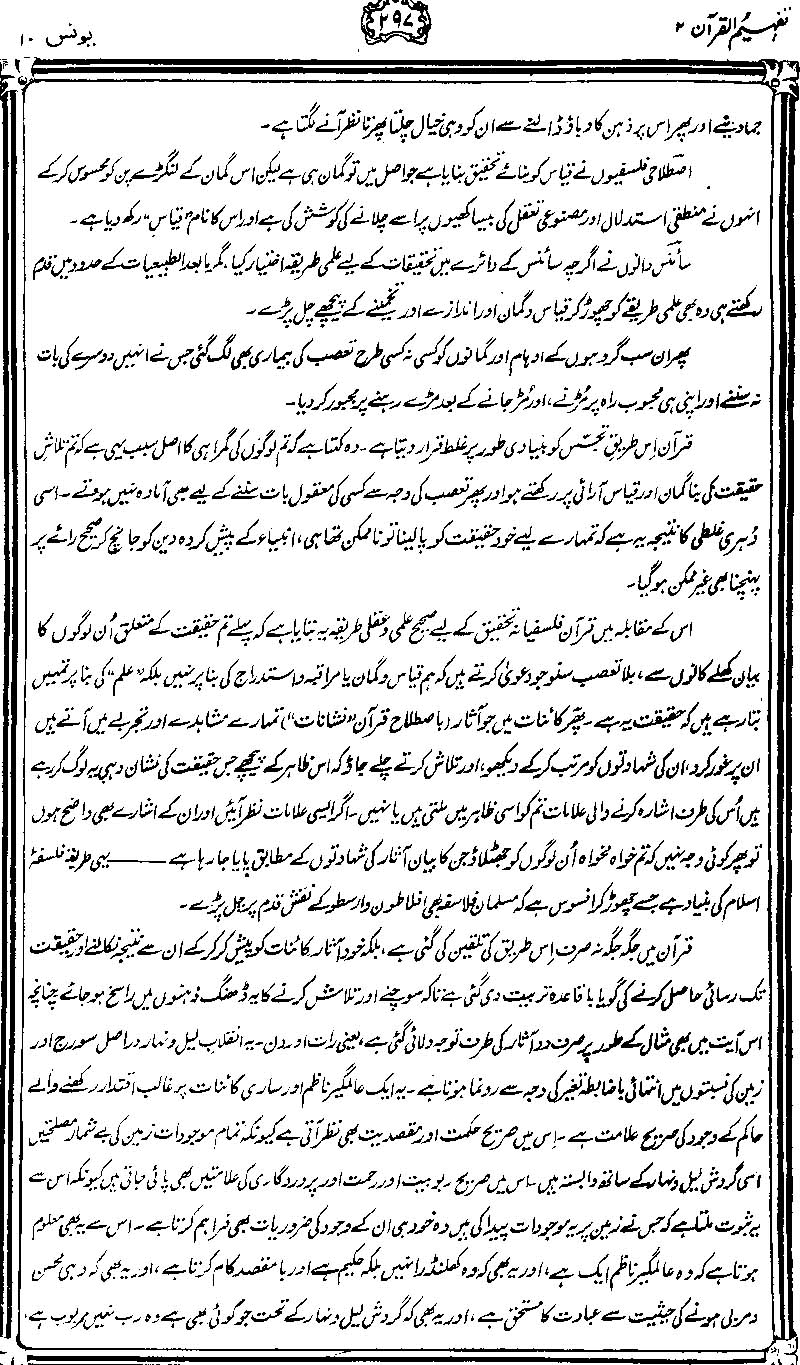 تفہیم القرآن ۲
۲۹۷
یونس ۱۰
جما دینے اور پھر اس پر ذہن کا دباؤ ڈالنے سے ان کو وہی خیال چلتا پھرتا نظر آنے لگتا ہے۔
اصطلاحی فلسفیوں نے قیاس کو بنائے تحقیق بنایا ہے جو اصل میں تو گمان ہی ہے لیکن اس گمان کے لنگڑے پن کو محسوس کر کے
انہوں نے منطقی استدلال اور مصنوعی تعقل کی بیساکھیوں پر اسے چلانے کی کوشش کی ہے اور اس کا نام ”قیاس“ رکھ دیا ہے۔
سائنس دانوں نے اگرچہ سائنس کے دائرے میں تحقیقات کے لیے علمی طریقہ اختیار کیا، مگر مابعد الطبیعیات کے حدود میں قدم
رکھتے ہی وہ بھی علمی طریقے کو چھوڑ کر قیاس و گمان اور اندازے اور تخمینے کے پیچھے چل پڑے۔
پھر ان سب گروہوں کے اوہام اور گمانوں کو کسی نہ کسی طرح تعصب کی بیماری بھی لگ گئی جس نے انہیں دوسرے کی بات
نہ سننے اور اپنی ہی محبوب راہ پر مُڑنے، اور مُڑ جانے کے بعد مڑے رہنے پر مجبور کر دیا۔
قرآن اِس طریقِ تجسّس کو بنیادی طور پر غلط قرار دیتا ہے۔ وہ کہتا ہے کہ تم لوگوں کی گمراہی کا اصل سبب یہی ہے کہ تم تلاشِ
حقیقت کی بنا گمان اور قیاس آرائی پر رکھتے ہو اور پھر تعصب کی وجہ سے کسی کی معقول بات سننے کے لیے بھی آمادہ نہیں ہوتے۔ اسی
دُہری غلطی کا نتیجہ یہ ہے کہ تمہارے لیے خود حقیقت کو پا لینا تو ناممکن تھا ہی، انبیاء کے پیش کردہ دین کو جانچ کر صحیح رائے پر
پہنچنا بھی غیر ممکن ہو گیا۔
اس کے مقابلہ میں قرآن فلسفیانہ تحقیق کے لیے صحیح علمی و عقلی طریقہ یہ بتایا ہے کہ پہلے تم حقیقت کے متعلق اُن لوگوں کا
بیان کھلے کانوں سے، بلا تعصب سنو جو دعویٰ کرتے ہیں کہ ہم قیاس و گمان یا مراقبہ و استدراج کی بنا پر نہیں بلکہ ”علم“ کی بنا پر تمہیں
بتا رہے ہیں کہ حقیقت یہ ہے۔ پھر کائنات میں جو آثار (باصطلاح قرآن ”نشانات“) تمہارے مشاہدے اور تجربے میں آتے ہیں
ان پر غور کرو، ان کی شہادتوں کو مرتب کر کے دیکھو، اور تلاش کرتے چلے جاؤ کہ اس ظاہر کے پیچھے جس حقیقت کی نشان دہی یہ لوگ کر رہے
ہیں اُس کی طرف اشارہ کرنے والی علامات تم کو اسی ظاہر میں ملتی ہیں یا نہیں۔ اگر ایسی علامات نظر آئیں اور ان کے اشارے بھی واضح ہوں
تو پھر کوئی وجہ نہیں کہ تم خواہ مخواہ اُن لوگوں کو جھٹلاؤ جن کا بیان آثار کی شہادتوں کے مطابق پایا جا رہا ہے ——— یہی طریقہ فلسفۂ
اسلام کی بنیاد ہے جسے چھوڑ کر افسوس ہے کہ مسلمان فلاسفہ بھی افلاطون و ارسطو کے نقش قدم پر چل پڑے۔
قرآن میں جگہ جگہ نہ صرف اِس طریق کی تلقین کی گئی ہے، بلکہ خود آثار کائنات کو پیش کر کر کے ان سے نتیجہ نکالنے اور حقیقت
تک رسائی حاصل کرنے کی گویا باقاعدہ تربیت دی گئی ہے تاکہ سوچنے اور تلاش کرنے کا یہ ڈھنگ ذہنوں میں راسخ ہو جائے۔ چنانچہ
اس آیت میں بھی مثال کے طور پر صرف دو آثار کی طرف توجہ دلائی گئی ہے، یعنی رات اور دن۔ یہ انقلاب لیل و نہار دراصل سورج اور
زمین کی نسبتوں میں انتہائی باضابطہ تغیر کی وجہ سے رونما ہوتا ہے۔ یہ ایک عالمگیر ناظم اور ساری کائنات پر غالب اقتدار رکھنے والے
حاکم کے وجود کی صریح علامت ہے۔ اس میں صریح حکمت اور مقصدیت بھی نظر آتی ہے کیونکہ تمام موجودات زمین کی بے شمار مصلحتیں
اسی گردش لیل و نہار کے ساتھ وابستہ ہیں۔ اس میں صریح ربوبیت اور رحمت اور پروردگاری کی علامتیں بھی پائی جاتی ہیں کیونکہ اس سے
یہ ثبوت ملتا ہے کہ جس نے زمین پر یہ موجودات پیدا کی ہیں وہ خود ہی ان کے وجود کی ضروریات بھی فراہم کرتا ہے۔ اس سے یہ بھی معلوم
ہوتا ہے کہ وہ عالمگیر ناظم ایک ہے، اور یہ بھی کہ وہ کھلنڈرا نہیں بلکہ حکیم ہے اور با مقصد کام کرتا ہے، اور یہ بھی کہ وہی محسن
و مربی ہونے کی حیثیت سے عبادت کا مستحق ہے، اور یہ بھی کہ گردش لیل و نہار کے تحت جو کوئی بھی ہے وہ رب نہیں مربوب ہے،